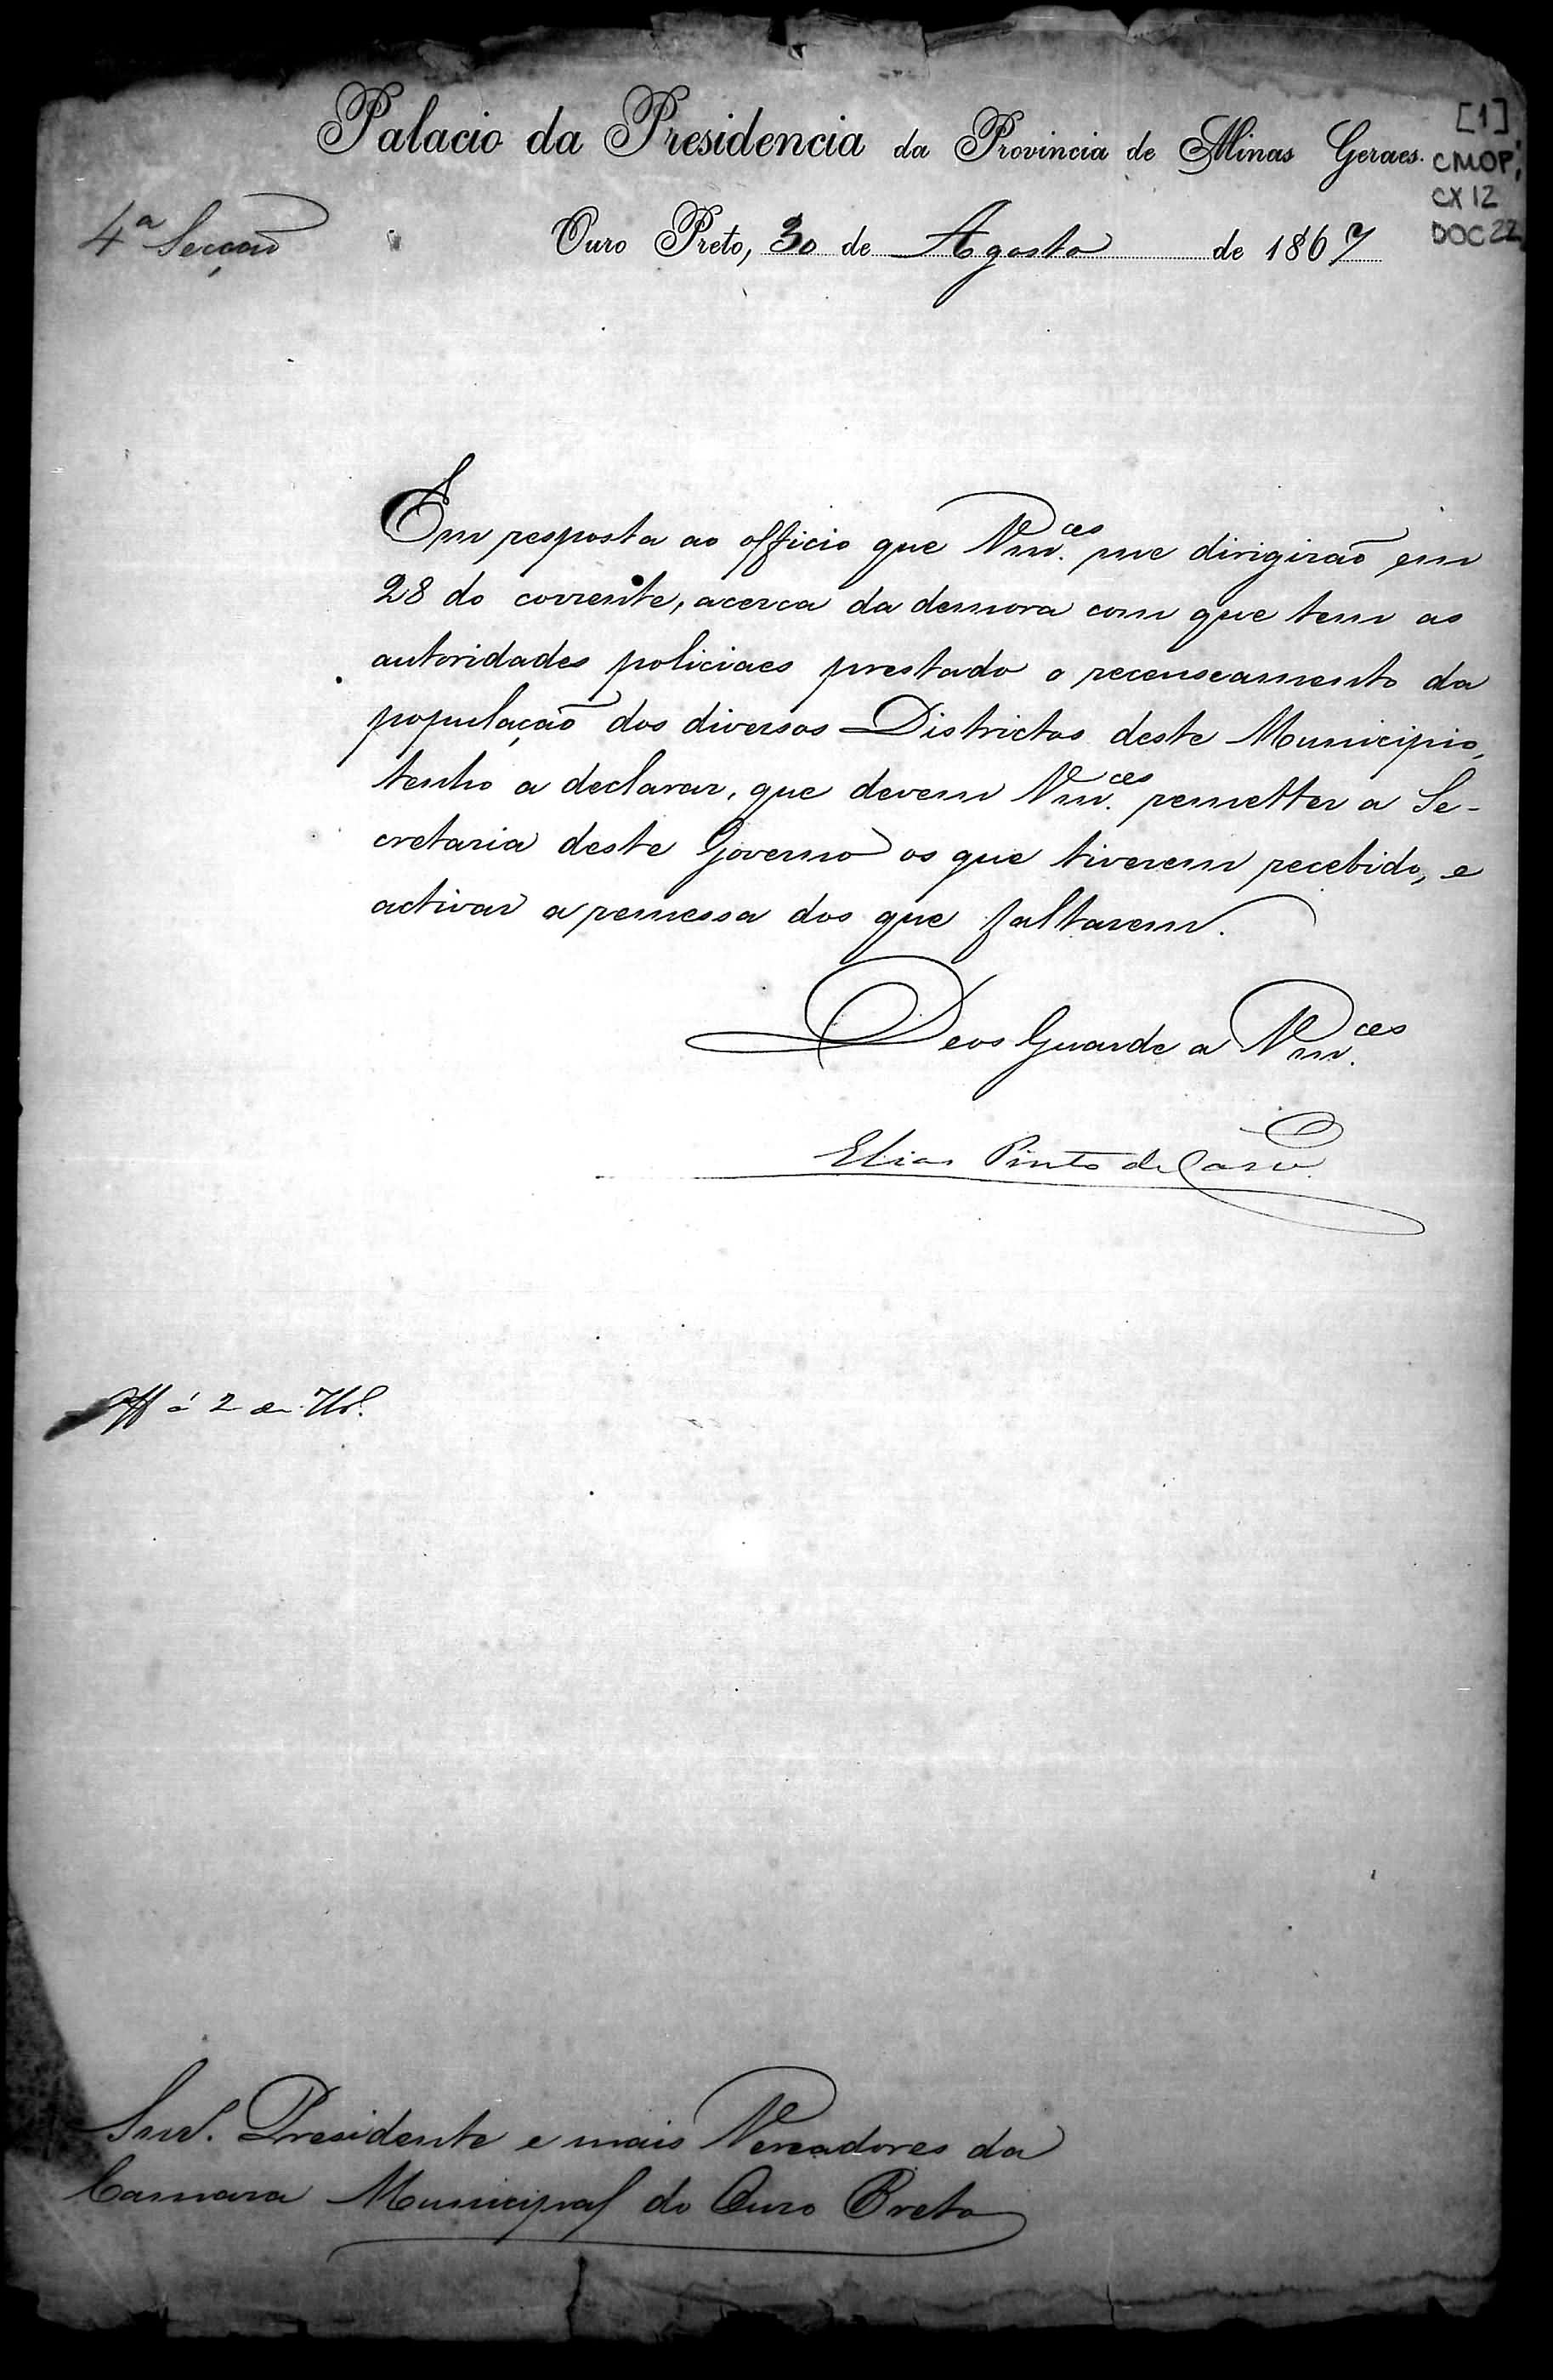 Palacio da Presidencia da Provincia de Minas Geraes.
[1]
CMOP,
CX 12
DOC 22
4ª Secção
Ouro Preto, 30 de Agosto de 1867
Em resposta ao officio que Vm.ces me dirigirão em
28 do corrente, acerca da demora com que tem as
autoridades policiaes prestado o recenseamento da
população dos diversos Districtos deste Municipio,
tenho a declarar, que devem Vm.ces remetter a Se-
cretaria deste Governo os que tiverem recebido, e
activar a remessa dos que faltarem.
Deos Guarde a Vm.ces
Elias Pinto de Carv.o
Off á 2 de
Snr. Presidente e mais Vereadores da
Camara Municipal do Ouro Preto